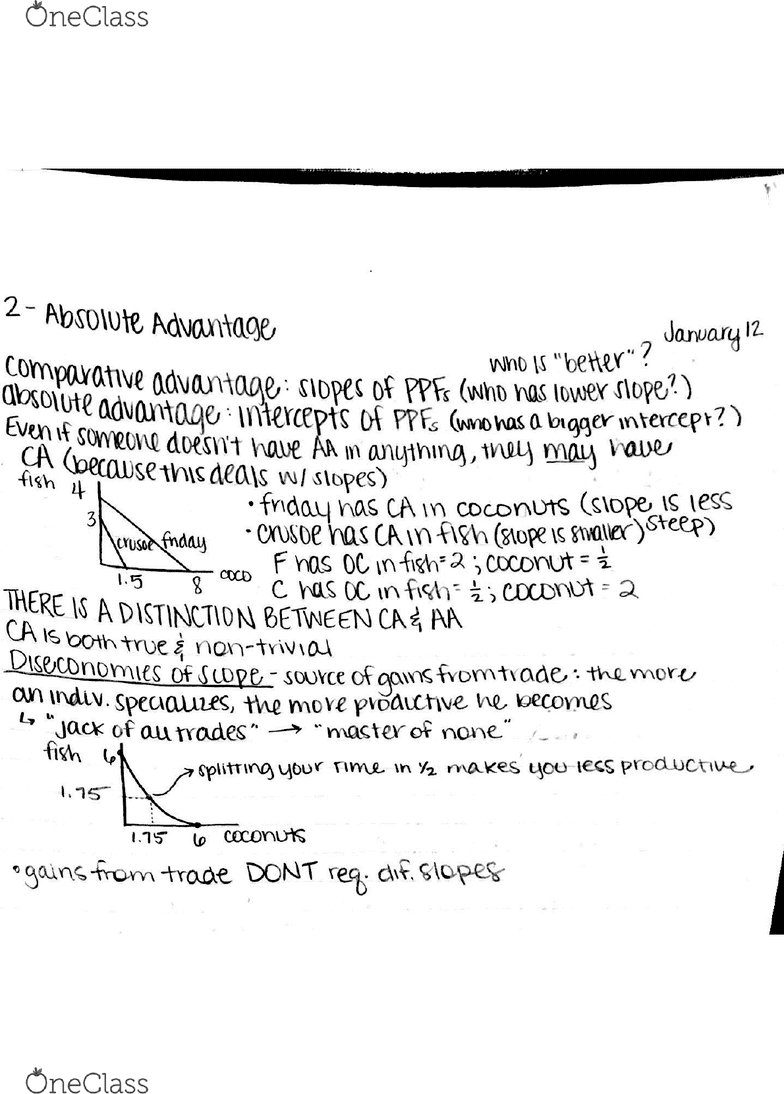 OneClass
2 - Absolute Advantage
January 12
who is "better"?
comparative advantage: slopes of PPFs (who has lower slope?)
absolute advantage: intercepts of PPFs (who has a bigger intercept?)
Even if someone doesn't have AA in anything, they may have
CA (because this deals w/ slopes)
fish 4
3
crusoe friday
1.5 8 coco
• friday has CA in coconuts (slope is less steep)
• crusoe has CA in fish (slope is smaller)
F has OC in fish=2; coconut = 1/2
C has OC in fish = 1/2; coconut = 2
THERE IS A DISTINCTION BETWEEN CA & AA
CA is both true & non-trivial
Diseconomies of scope - source of gains from trade: the more
an indiv. specializes, the more productive he becomes
↳ "jack of all trades" → "master of none"
fish 6
→ splitting your time in 1/2 makes you less productive
1.75
1.75 6 coconuts
• gains from trade DONT req. dif. slopes
OneClass